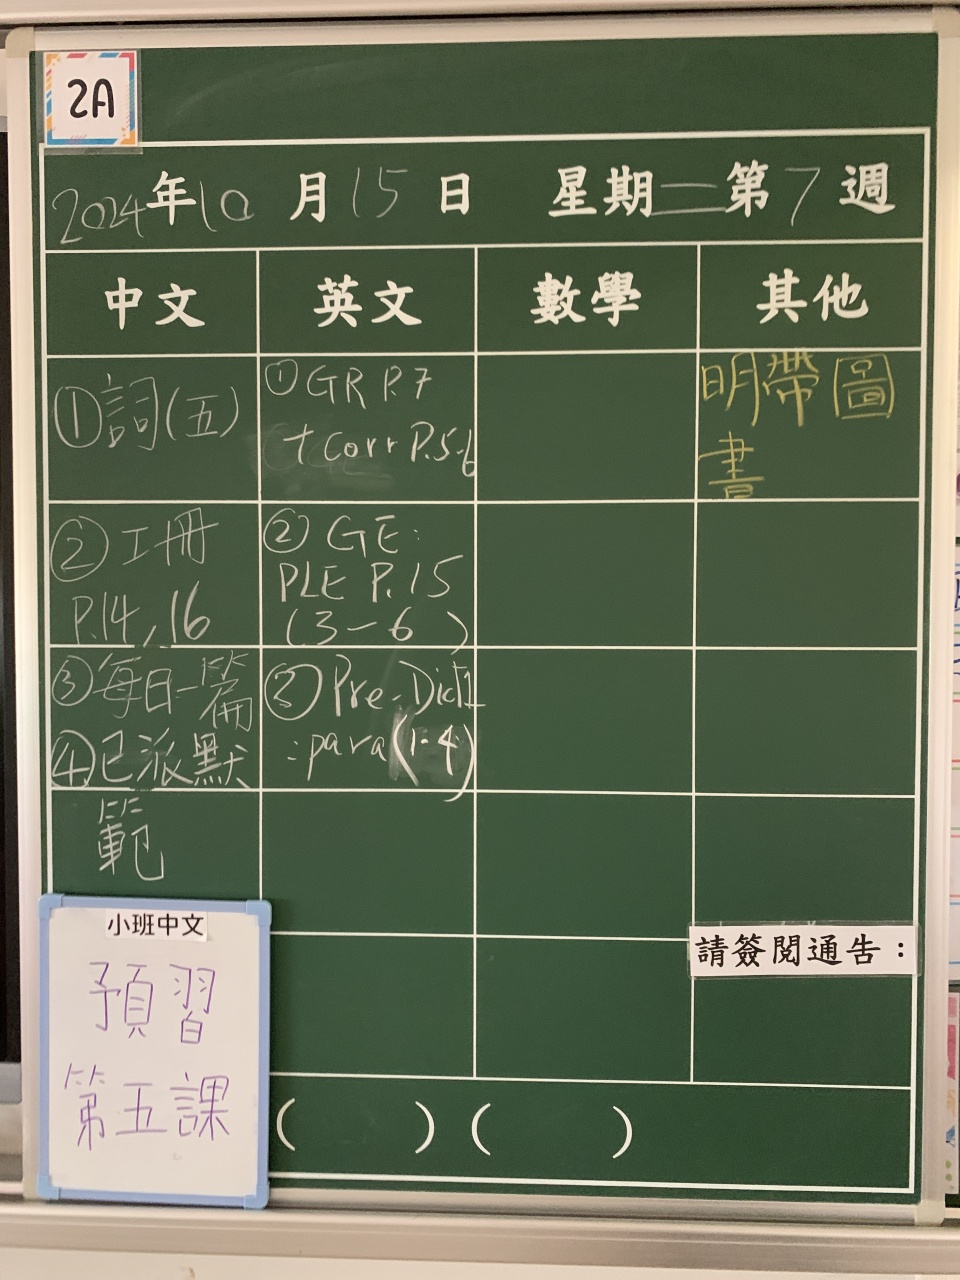 2A
2024年10月15日 星期二第7週
中文
英文
數學
其他
①詞(五)
②工冊
P.14,16
③每日一篇
④已派默
範
①GR P.7
+ corr P.5-6
②GE:
PLE P.15
(3-6)
③Pre-Dict1
:para(1-4)
明帶圖
書
請簽閱通告：
小班中文
預習
第五課
( ) ( )